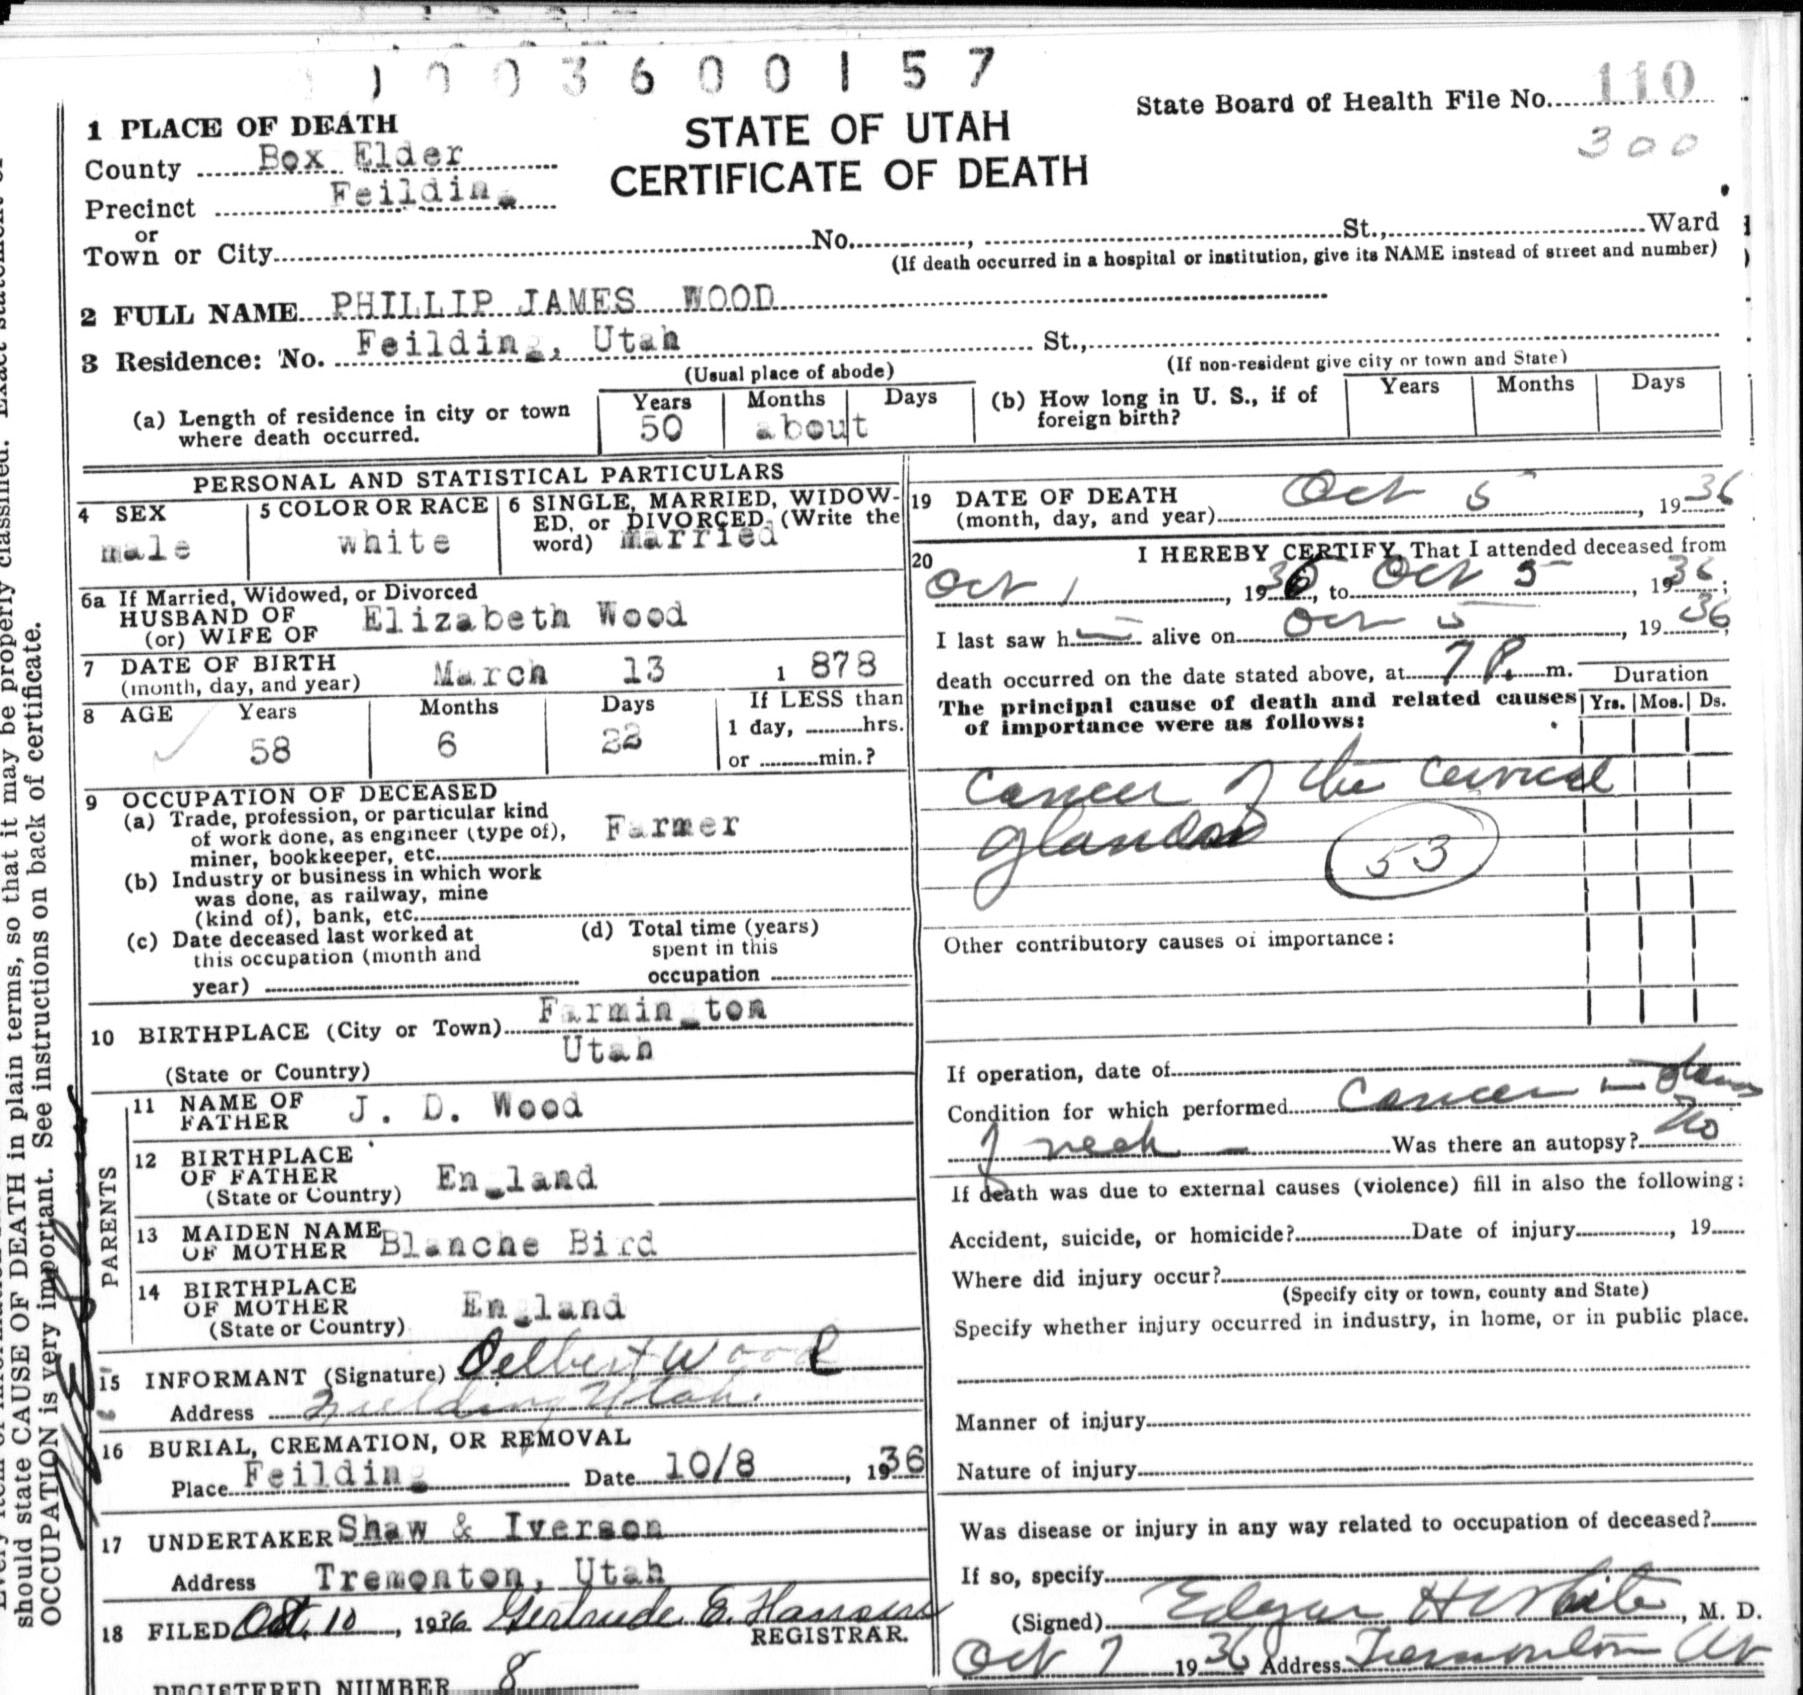 1003600157
State Board of Health File No. 110
300
STATE OF UTAH
CERTIFICATE OF DEATH
1 PLACE OF DEATH
County Box Elder
Precinct Feilding
or
Town or City No. , St., Ward
(If death occurred in a hospital or institution, give its NAME instead of street and number)
2 FULL NAME PHILLIP JAMES WOOD
3 Residence: No. Feilding, Utah St.,
(Usual place of abode) (If non-resident give city or town and State)
(a) Length of residence in city or town where death occurred. Years 50 Months about Days
(b) How long in U. S., if of foreign birth? Years Months Days
PERSONAL AND STATISTICAL PARTICULARS
4 SEX male
5 COLOR OR RACE white
6 SINGLE, MARRIED, WIDOW-
ED, or DIVORCED (Write the
word) married
6a If Married, Widowed, or Divorced
HUSBAND OF
(or) WIFE OF Elizabeth Wood
7 DATE OF BIRTH
(month, day, and year) March 13 1 878
8 AGE Years 58 Months 6 Days 22
If LESS than
1 day, hrs.
or min.?
9 OCCUPATION OF DECEASED
(a) Trade, profession, or particular kind
of work done, as engineer (type of),
miner, bookkeeper, etc. Farmer
(b) Industry or business in which work
was done, as railway, mine
(kind of), bank, etc.
(c) Date deceased last worked at
this occupation (month and
year)
(d) Total time (years)
spent in this
occupation
10 BIRTHPLACE (City or Town) Farmington
Utah
(State or Country)
PARENTS
11 NAME OF
FATHER J. D. Wood
12 BIRTHPLACE
OF FATHER
(State or Country) England
13 MAIDEN NAME
OF MOTHER Blanche Bird
14 BIRTHPLACE
OF MOTHER
(State or Country) England
15 INFORMANT (Signature) Delbert Wood
Address Fielding Utah.
16 BURIAL, CREMATION, OR REMOVAL
Place Feilding Date 10/8, 1936
17 UNDERTAKER Shaw & Iverson
Address Tremonton, Utah
18 FILED Oct. 10, 1936 Gertrude E.
REGISTRAR.
REGISTERED NUMBER 8
19 DATE OF DEATH
(month, day, and year) Oct 5, 1936
20 I HEREBY CERTIFY, That I attended deceased from
Oct 1, 1936, to Oct 5, 1936;
I last saw h alive on Oct 5, 1936;
death occurred on the date stated above, at 7 P. m.
Duration
The principal cause of death and related causes Yrs. Mos. Ds.
of importance were as follows:
Cancer of the cervical
glands
53
Other contributory causes of importance:
If operation, date of
Condition for which performed Cancer
of neck Was there an autopsy? No
If death was due to external causes (violence) fill in also the following:
Accident, suicide, or homicide? Date of injury , 19
Where did injury occur?
(Specify city or town, county and State)
Specify whether injury occurred in industry, in home, or in public place.
Manner of injury
Nature of injury
Was disease or injury in any way related to occupation of deceased?
If so, specify
(Signed) Edgar H White, M. D.
Oct 7 1936 Address Tremonton Ut
should state CAUSE OF DEATH in plain terms, so that it may be properly classified. Exact statement of
OCCUPATION is very important. See instructions on back of certificate.